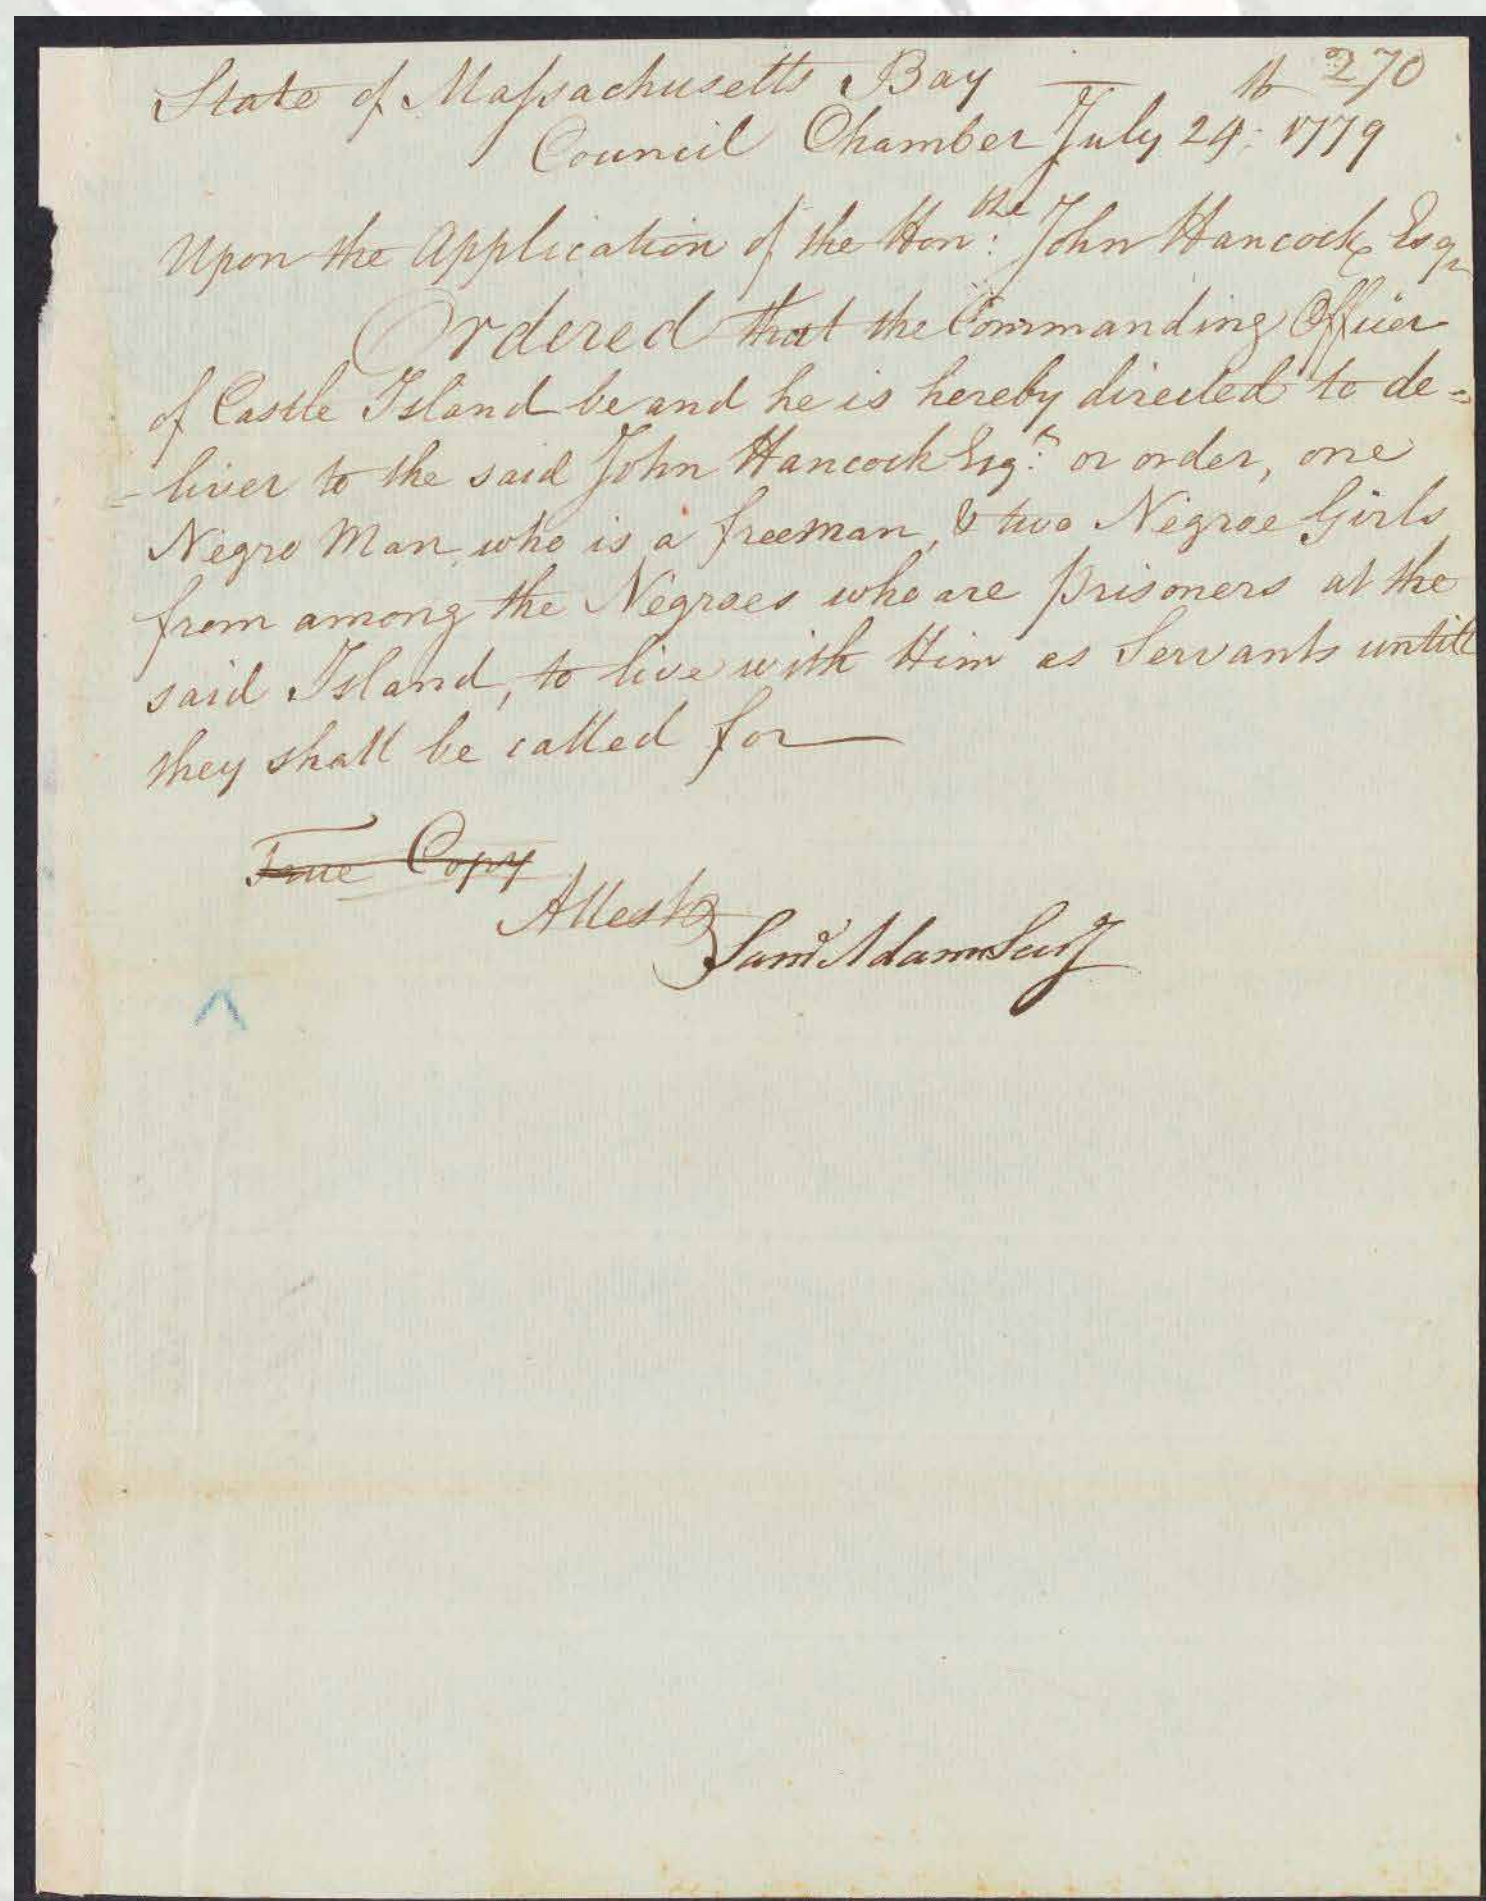 State of Massachusetts Bay — 270
Council Chamber July 24: 1779
Upon the Application of the Hon:ble John Hancock Esqr
Ordered that the Commanding Officer
of Castle Island be and he is hereby directed to de=
=liver to the said John Hancock Esq:r or order, one
Negro Man who is a freeman, & two Negroe Girls
from among the Negroes who are prisoners at the
said Island, to live with Him as Servants untill
they shall be called for—
True Copy
Attest
Saml Adams Secy